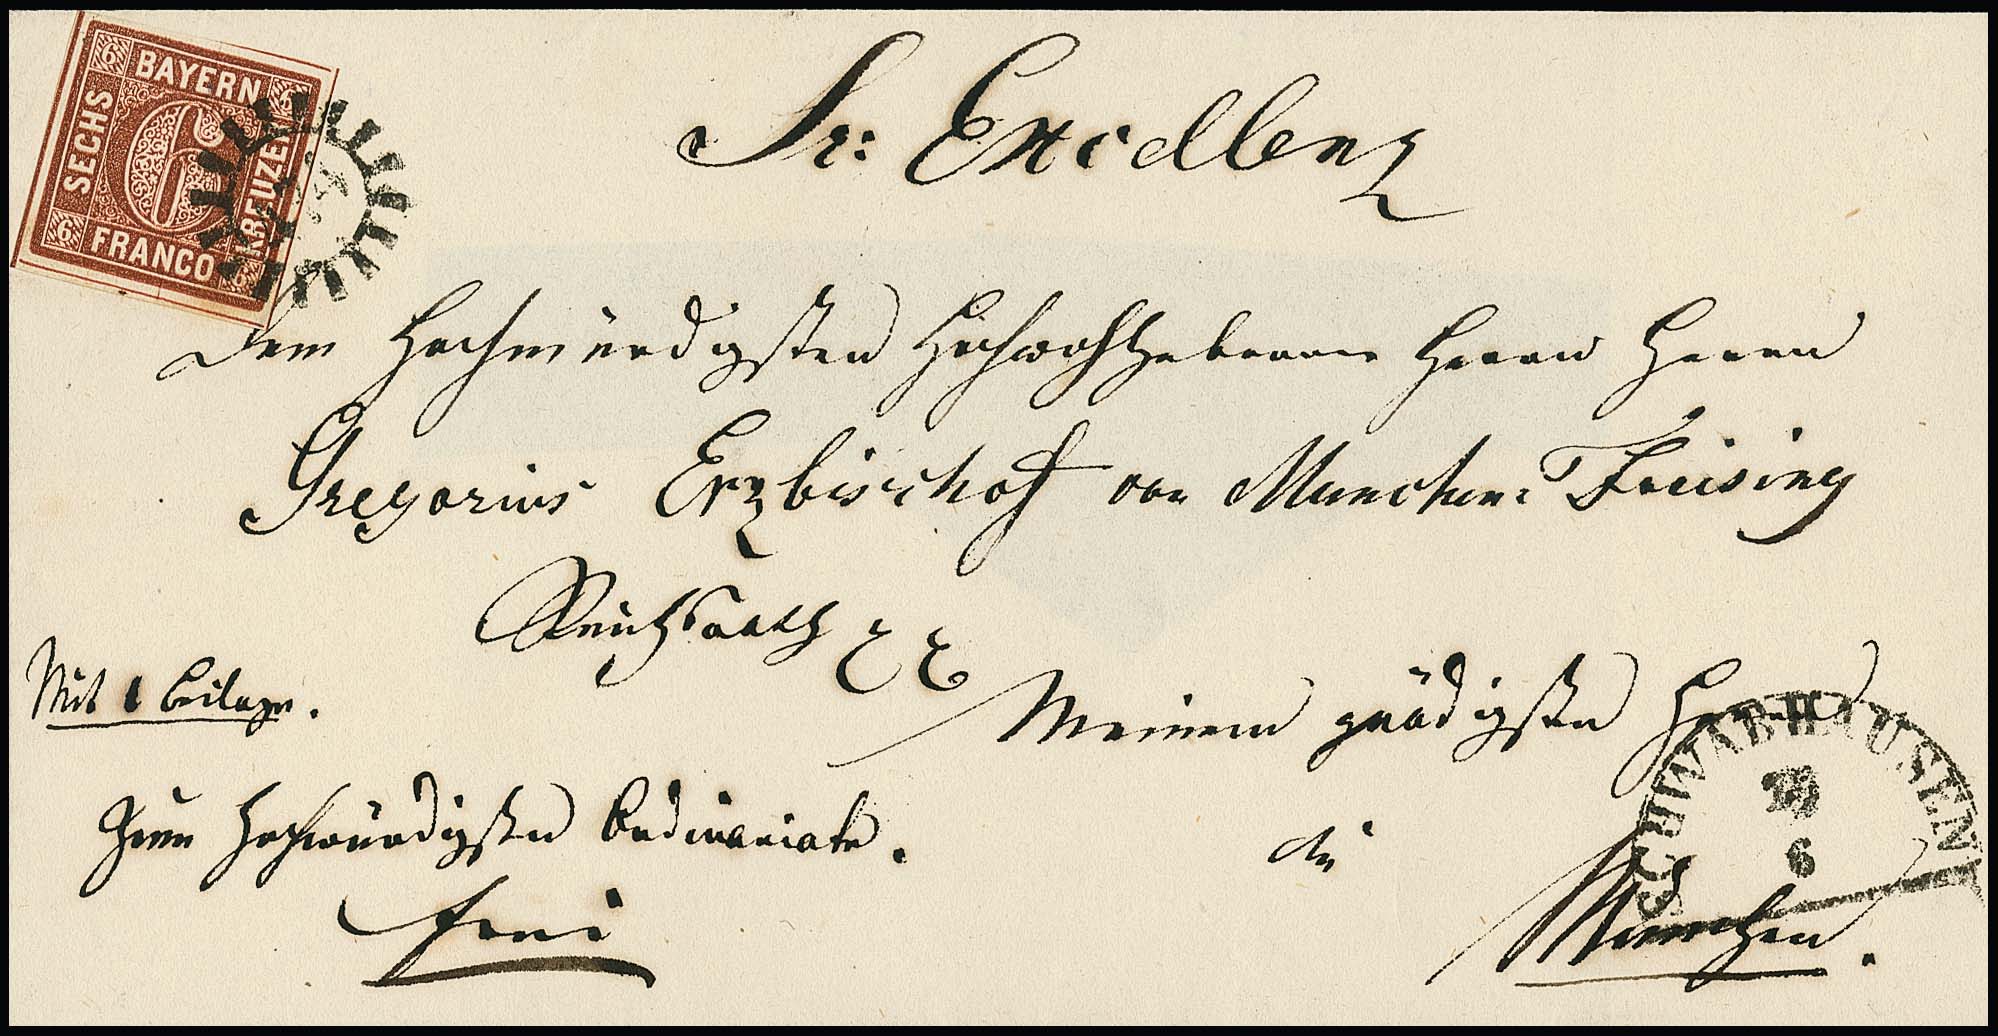 BAYERN
SECHS
KREUZER
FRANCO
6
6
6
6
6
Sr: Excellenz
Dem Hochwürdigsten Hochwohlgebornen Herrn Herrn
Gregorius Erzbischof von München-Freising
Reichsrath
Mit 1 Beilage.
Meinem gnädigsten Herrn
Zum Hochwürdigsten Ordinariate.
frei
in
München.
SCHWABHAUSEN
6